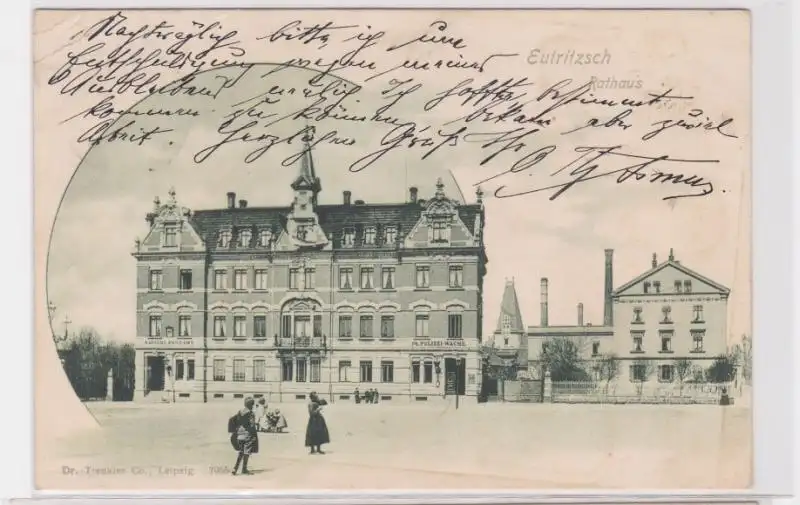 Nachträglich bitte ich um
Entschuldigung wegen meines
Ausbleibens, Ich hoffte bestimmt
kommen zu können, bekam aber zuviel
Arbeit. Herzlichen Gruß Ihr
Eutritzsch
Rathaus
KAISERL. POSTAMT
PL. POLIZEI-WACHE.
Dr. Trenkler Co., Leipzig